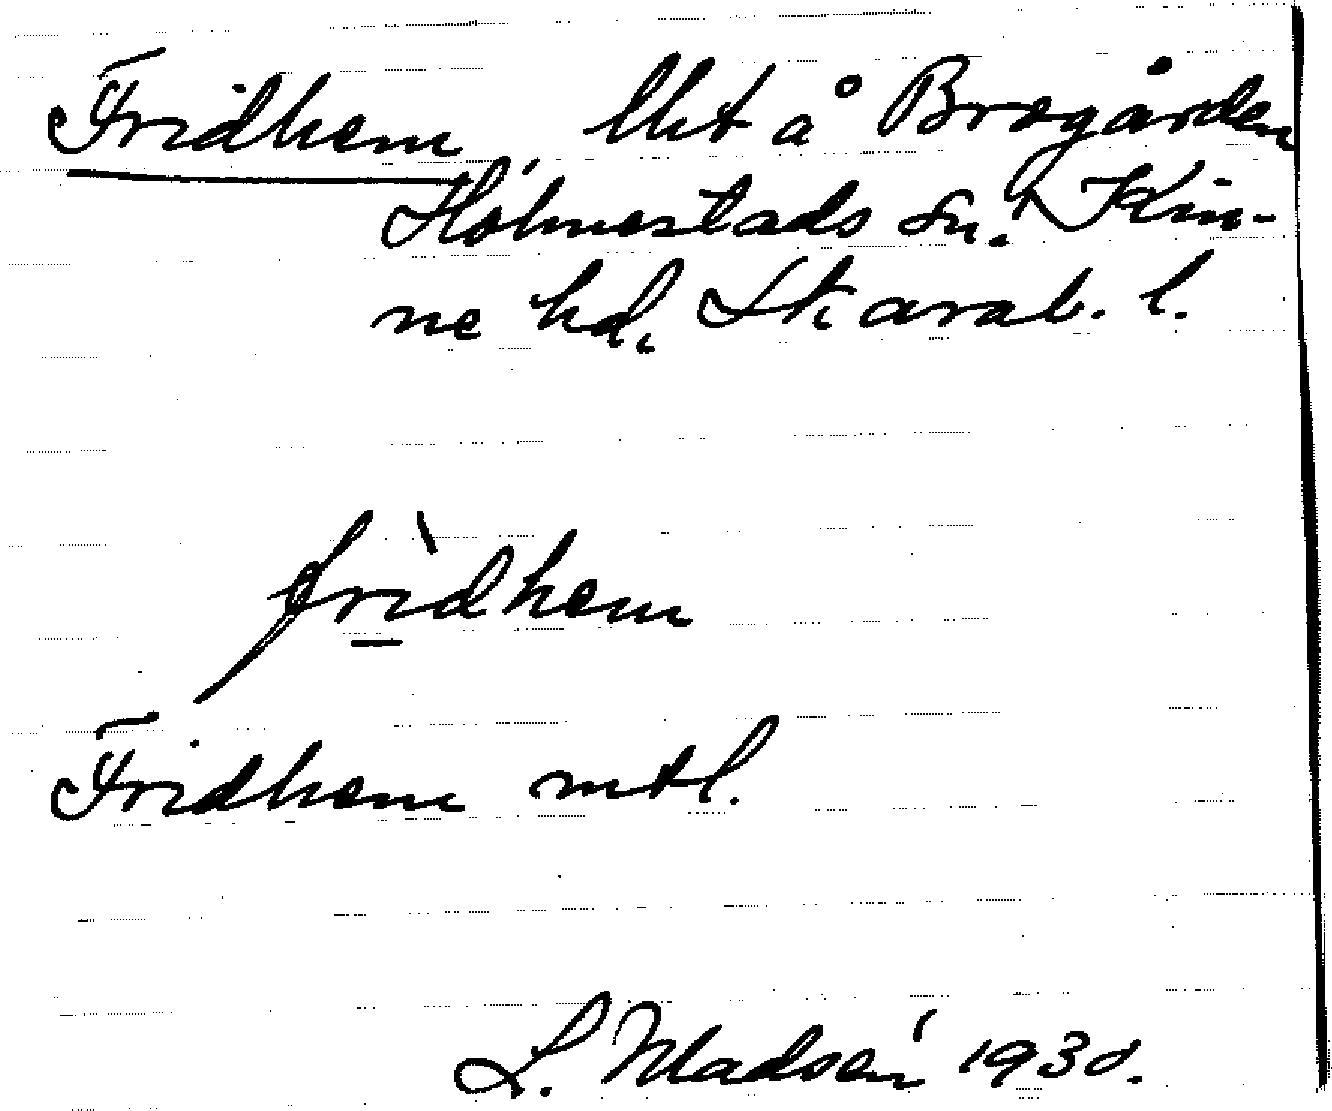 Fridhem, lht å Brogården
Holmestads sn. Kin-
ne hd, Skarab. l.
fri̲dhem
Fridhem mtl.
L. Madsén 1930.